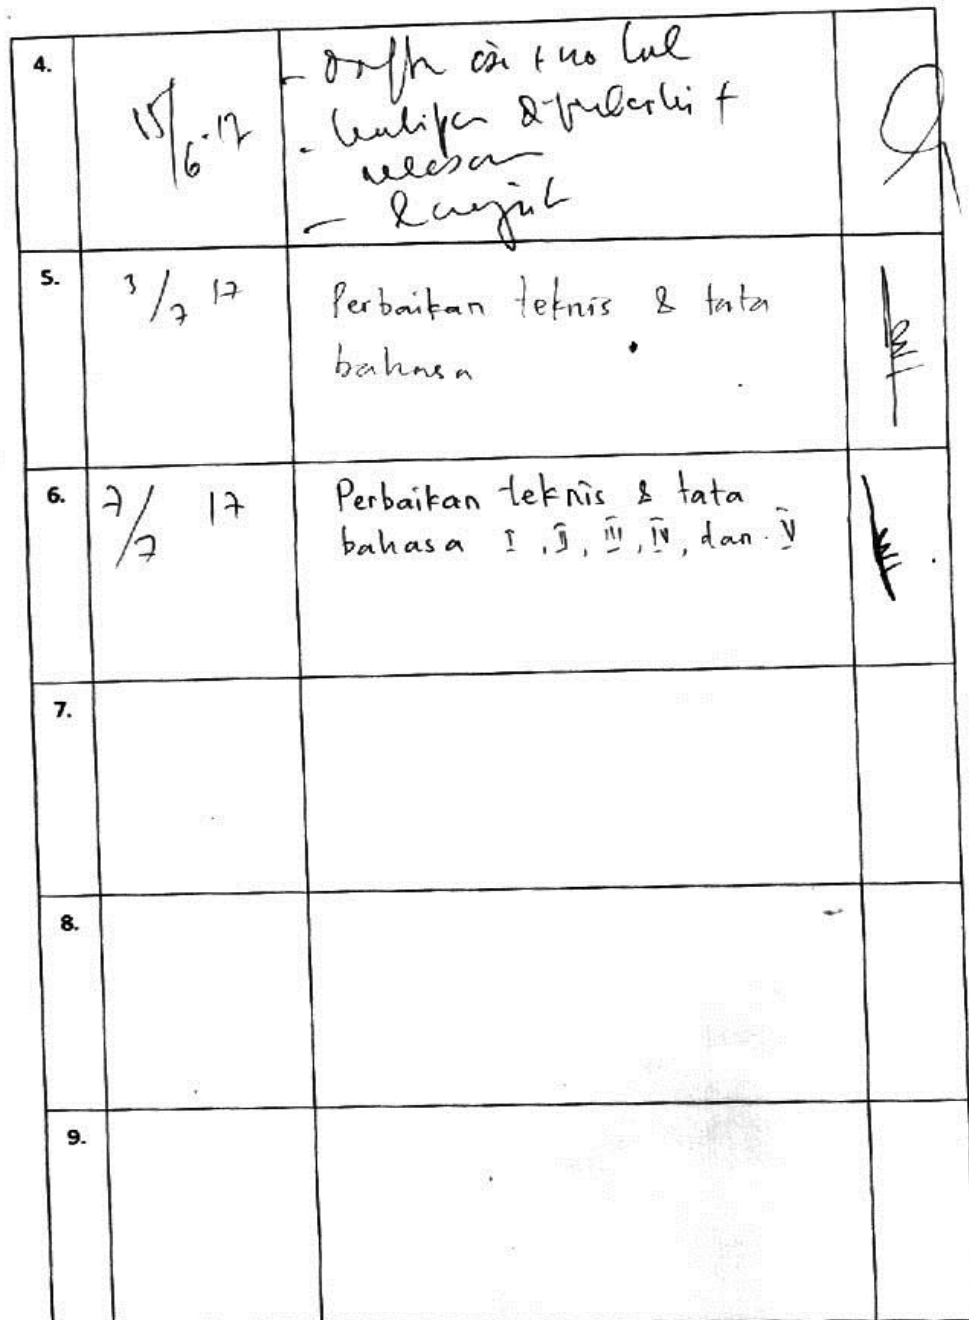 4.
15/6-17
- Daftar isi + no hal
-
-
5.
3/7 17
Perbaikan teknis & tata
bahasa
6.
7/7 17
Perbaikan teknis & tata
bahasa I, II, III, IV, dan V
7.
8.
9.